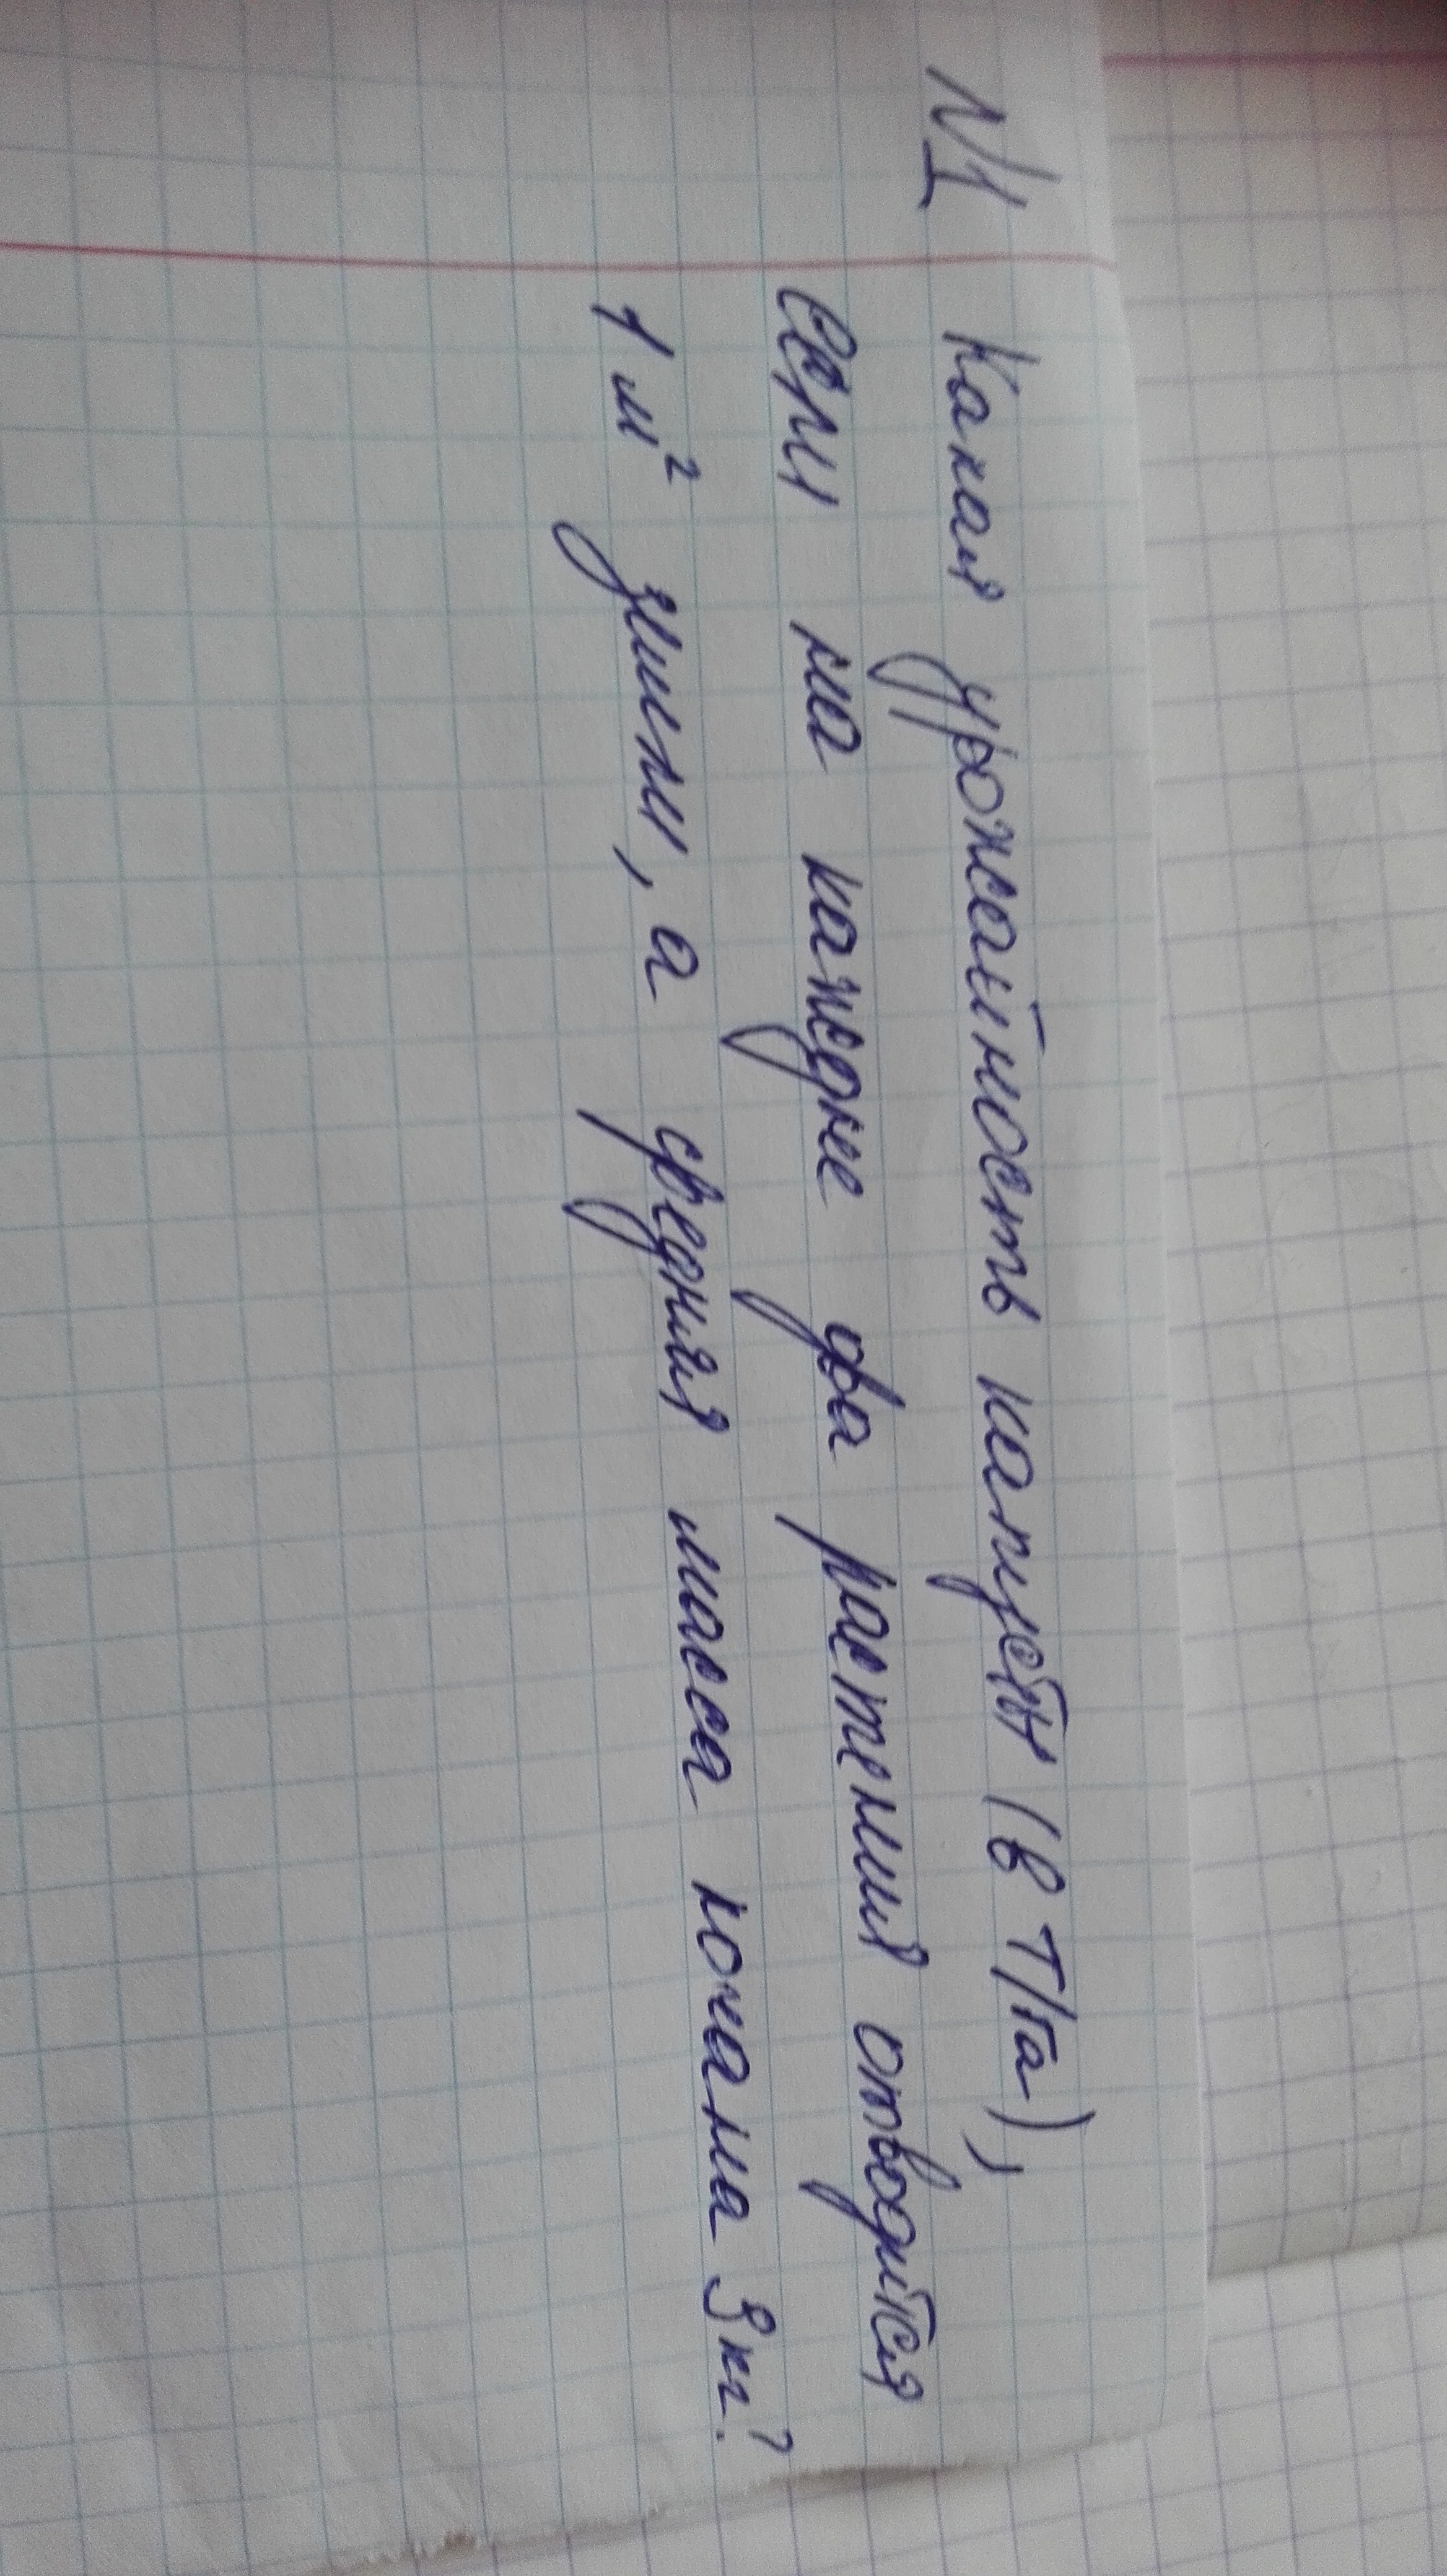 №1 Какая урожайность капусты (в т/га),
если на каждые два растения отводится
1 м² земли, а средняя масса кочана 3 кг?